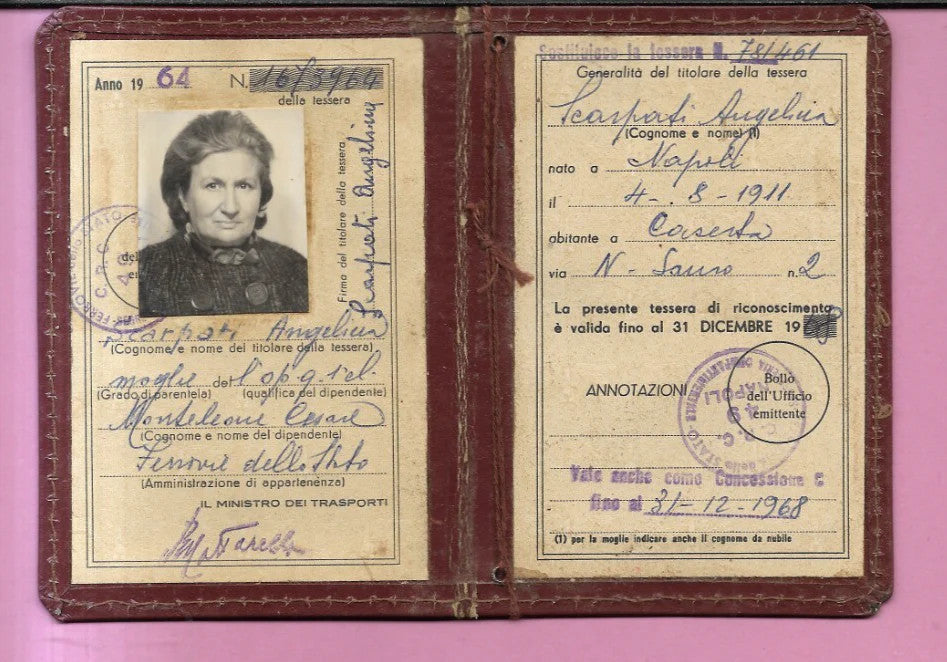 Anno 19 64 N. 16/3964
della tessera
Firma del titolare della tessera
Scarpati Angelina
Scarpati Angelina
(Cognome e nome del titolare della tessera)
moglie del l'op.q. i el.
(Grado di parentela) (qualifica del dipendente)
Monteleone Cesare
(Cognome e nome del dipendente)
Ferrovie dello Stato
(Amministrazione di appartenenza)
IL MINISTRO DEI TRASPORTI
Mattarella
Sostituisce la tessera N. 781461
Generalità del titolare della tessera
Scarpati Angelina
(Cognome e nome) (1)
nato a Napoli
il 4-8-1911
abitante a Caserta
via N. Sauro n. 2
La presente tessera di riconoscimento
è valida fino al 31 DICEMBRE 19
ANNOTAZIONI
Bollo
dell'Ufficio
emittente
NAPOLI
49
C. R. C.
Vale anche come Concessione C
fino al 31-12-1968
(1) per la moglie indicare anche il cognome da nubile